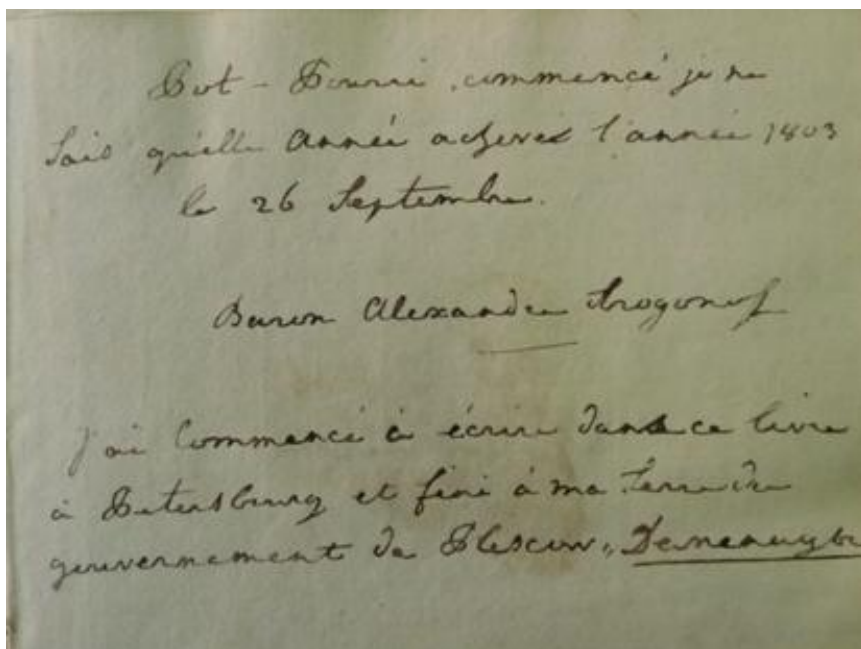 Pot - Pourri, commencé je ne
sais qu'elle année achevés l'année 1803
le 26 Septembre.
Baron Alexandre Strogonoff
J'ai commencé à écrire dans ce livre
à Petersbourg et fini à ma terre du
gouvernement de Plescow,